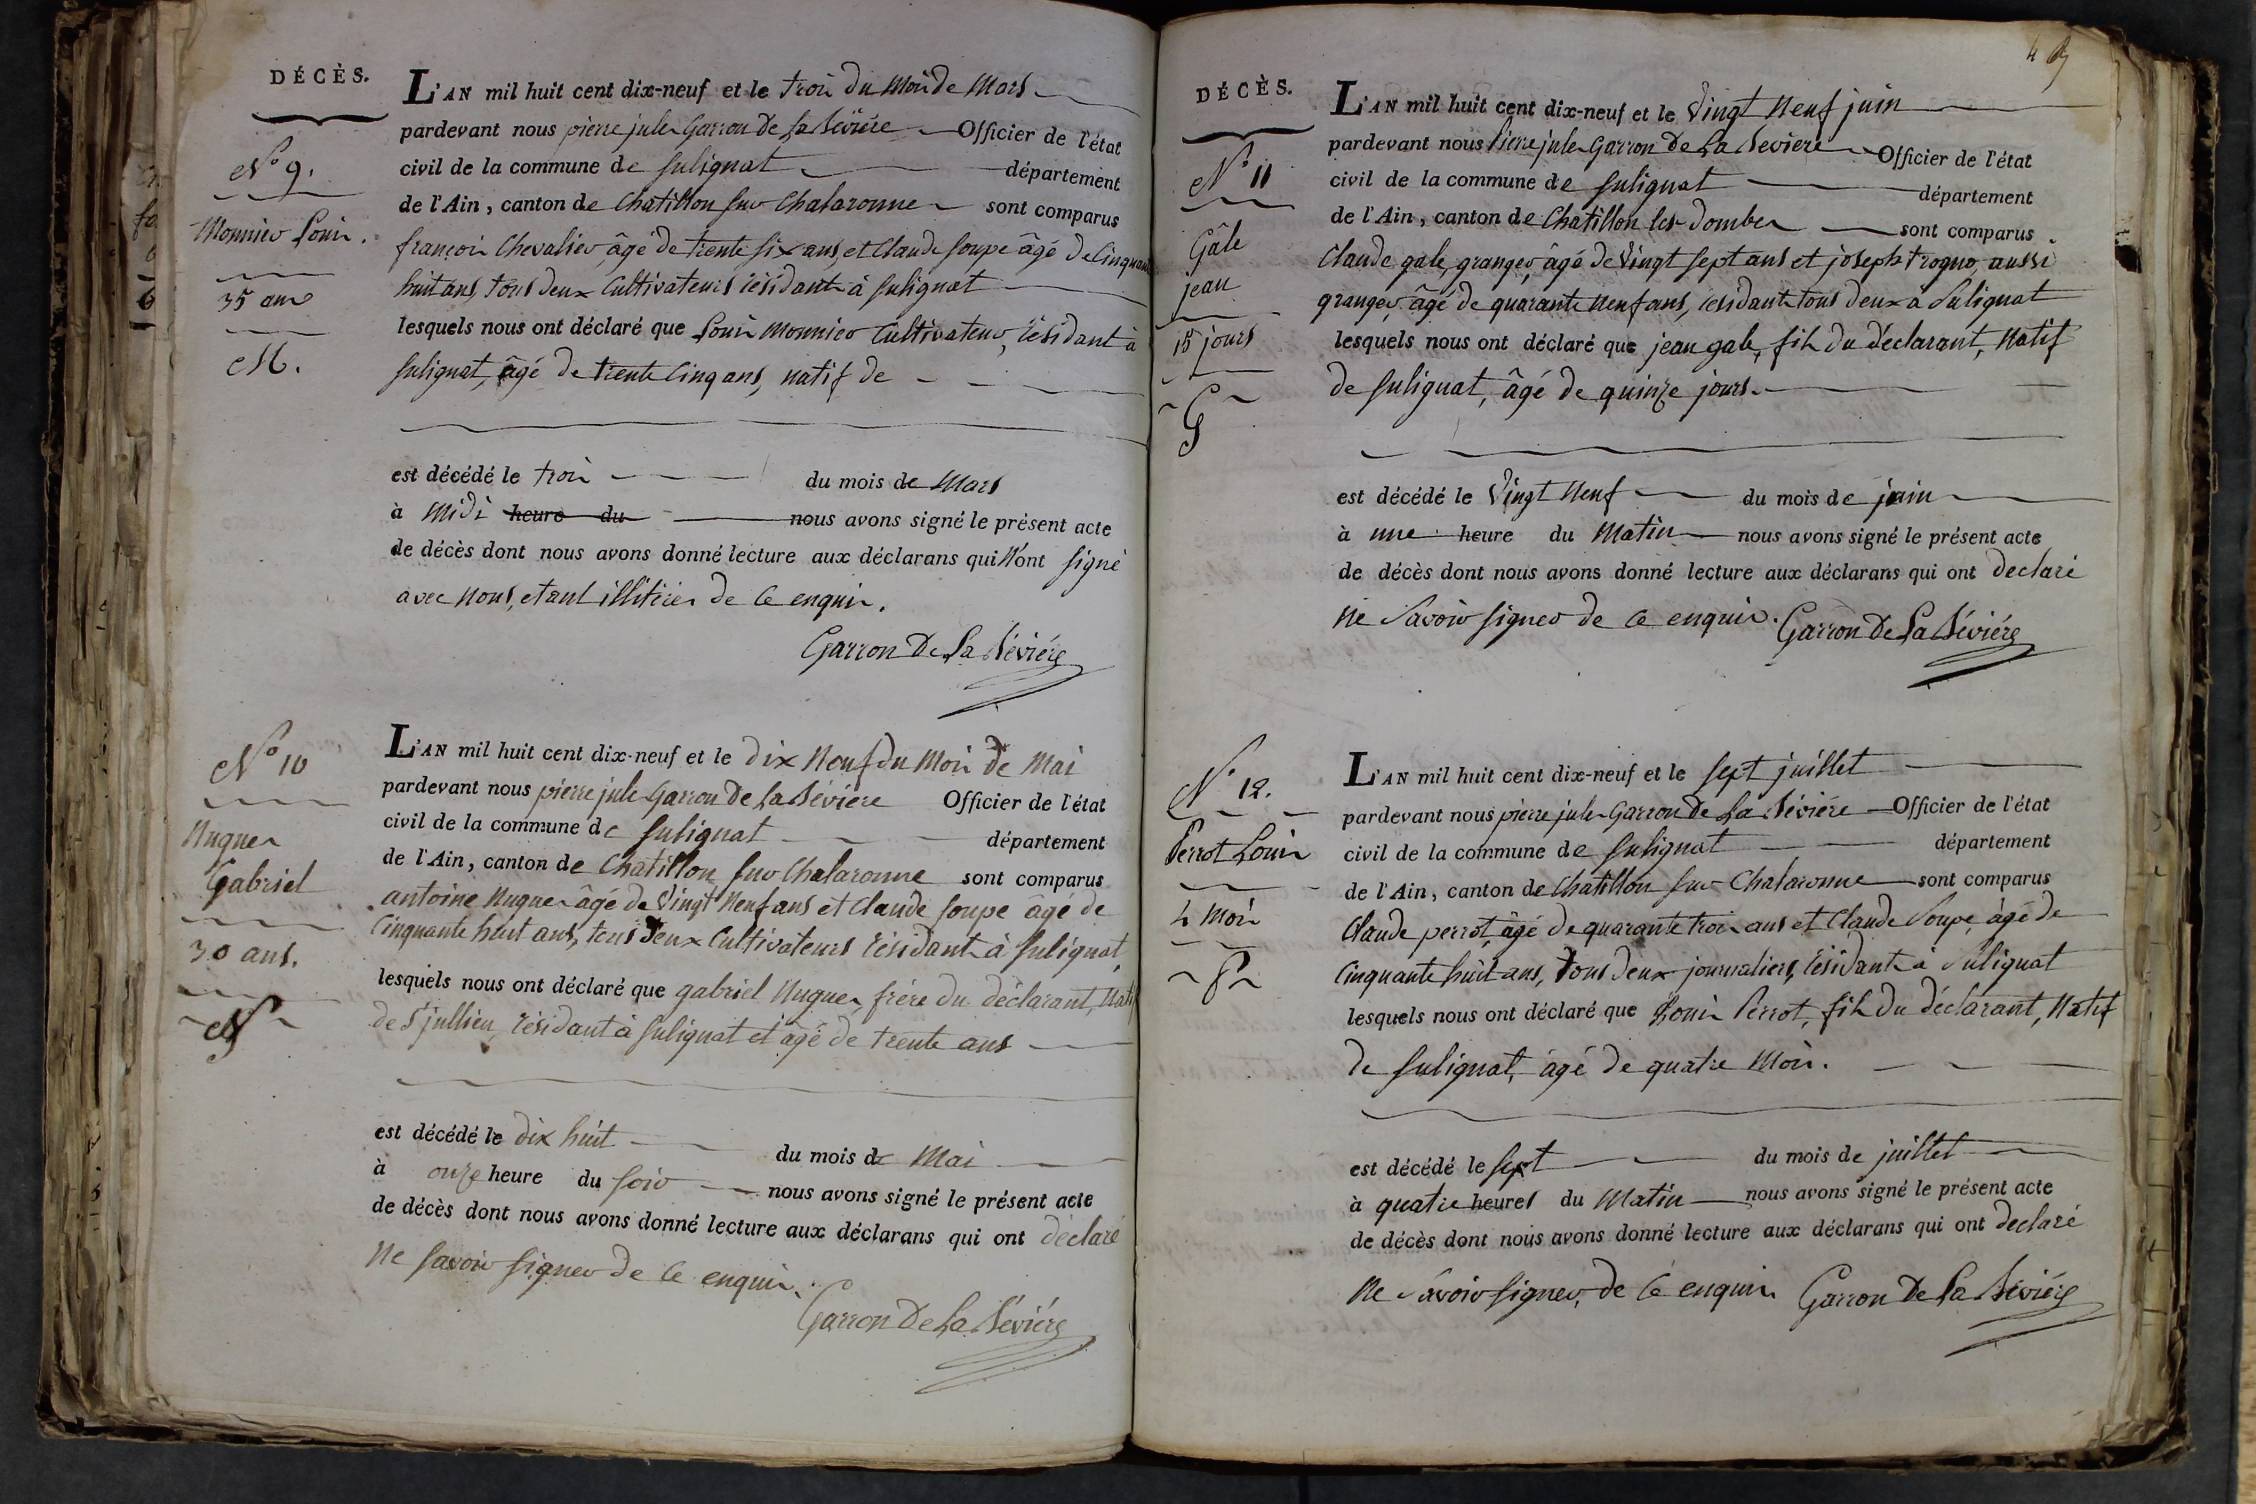 DÉCÈS.
N° 9.
Monnier Louis.
35 ans
M.
L'AN mil huit cent dix-neuf et le trois du Mois de Mars
pardevant nous pierre jules Garron de la Sévière Officier de l'état
civil de la commune de Sulignat département
de l'Ain, canton de Chatillon sur Chalaronne sont comparus
françois Chevalier, âgé de trente six ans, et Claude soupe âgé de Cinquante
huit ans, tous deux Cultivateurs résidants à Sulignat
lesquels nous ont déclaré que Louis Monnier Cultivateur, résidant à
Sulignat, âgé de trente Cinq ans, natif de
est décédé le trois du mois de Mars
à Midi heure du nous avons signé le présent acte
de décès dont nous avons donné lecture aux déclarans qui N'ont signé
avec Nous, etant illitérés de ce enquis.
Garron De La Sévière
N° 10
Nugues
Gabriel
30 ans.
N
L'AN mil huit cent dix-neuf et le dix Neuf du Mois de Mai
pardevant nous pierre jules Garron de la Sévière Officier de l'état
civil de la commune de Sulignat département
de l'Ain, canton de Chatillon sur Chalaronne sont comparus
antoine Nugues âgé de Vingt Neuf ans et Claude soupe âgé de
Cinquante huit ans, tous deux Cultivateurs résidants à Sulignat,
lesquels nous ont déclaré que gabriel Nugues, frère du déclarant, Natif
de St jullien, résidant à Sulignat et âgé de trente ans
est décédé le dix huit du mois de Mai
à onze heure du soir nous avons signé le présent acte
de décès dont nous avons donné lecture aux déclarans qui ont déclaré
Ne savoir signer de ce enquis.
Garron De La Sévière
DÉCÈS.
N° 11
Gâle
jean
15 jours
G
L'AN mil huit cent dix-neuf et le Vingt Neuf juin
pardevant nous Pierre jules Garron de La Sévière Officier de l'état
civil de la commune de Sulignat département
de l'Ain, canton de Chatillon les Dombes sont comparus
Claude gale, granger, âgé de Vingt sept ans et joseph trogno, aussi
granger âgé de quarante Neuf ans, résidants tous deux à Sulignat
lesquels nous ont déclaré que jean gale, fils du déclarant, Natif
de Sulignat, âgé de quinze jours.
est décédé le Vingt Neuf du mois de juin
à une heure du Matin nous avons signé le présent acte
de décès dont nous avons donné lecture aux déclarans qui ont déclaré
Ne Savoir signer de ce enquis. Garron De La Sévière
N° 12.
Perrot Louis
4 Mois
P
L'AN mil huit cent dix-neuf et le sept juillet
pardevant nous pierre jules Garron de La Sévière Officier de l'état
civil de la commune de Sulignat département
de l'Ain, canton de Chatillon sur Chalaronne sont comparus
Claude perrot, âgé de quarante trois ans et Claude Soupe, âgé de
Cinquante huit ans, tous deux journaliers, résidants à Sulignat
lesquels nous ont déclaré que Louis Perrot, fils du déclarant, Natif
de Sulignat, âgé de quatre Mois.
est décédé le sept du mois de juillet
à quatre heures du Matin nous avons signé le présent acte
de décès dont nous avons donné lecture aux déclarans qui ont déclaré
Ne Savoir signer, de ce enquis. Garron De La Sévière